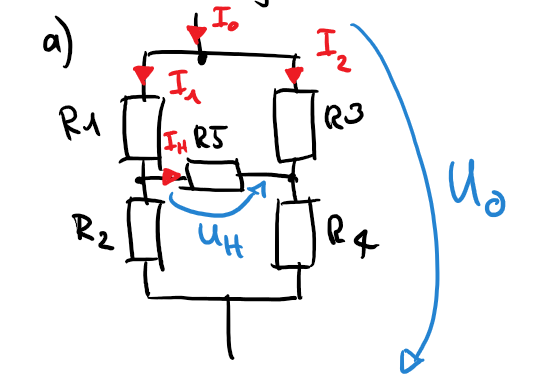 a)
I0
I1
I2
R1
R3
IH
R5
UH
R2
R4
U0